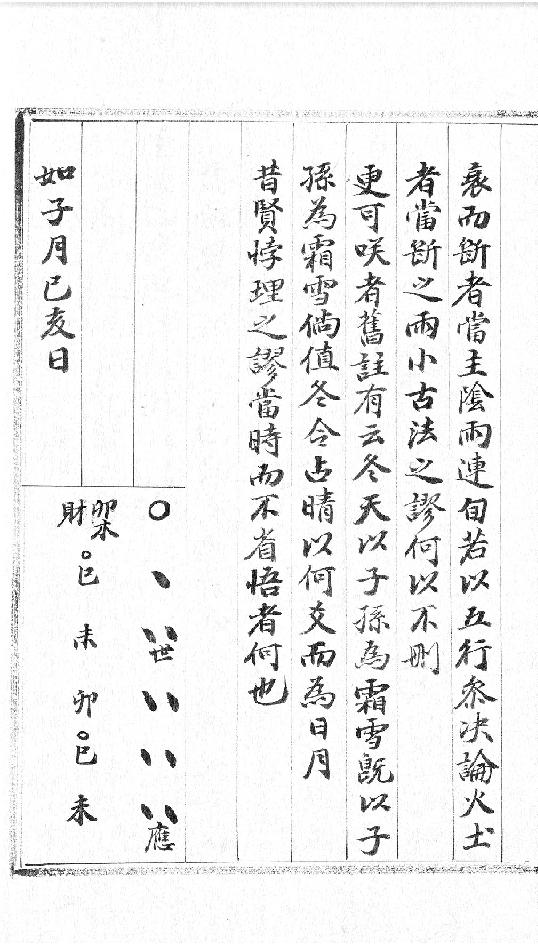 衰而斷者當主陰雨連旬若以五行叅决論火土
者當斷之雨小古法之謬何以不刪
更可咲者舊註有云冬天以子孫為霜雪旣以子
孫為霜雪倘值冬令占晴以何爻而為日月
昔賢悖理之謬當時而不省悟者何也
如子月已亥日
世
應
卯木
財
巳
未
卯
巳
未